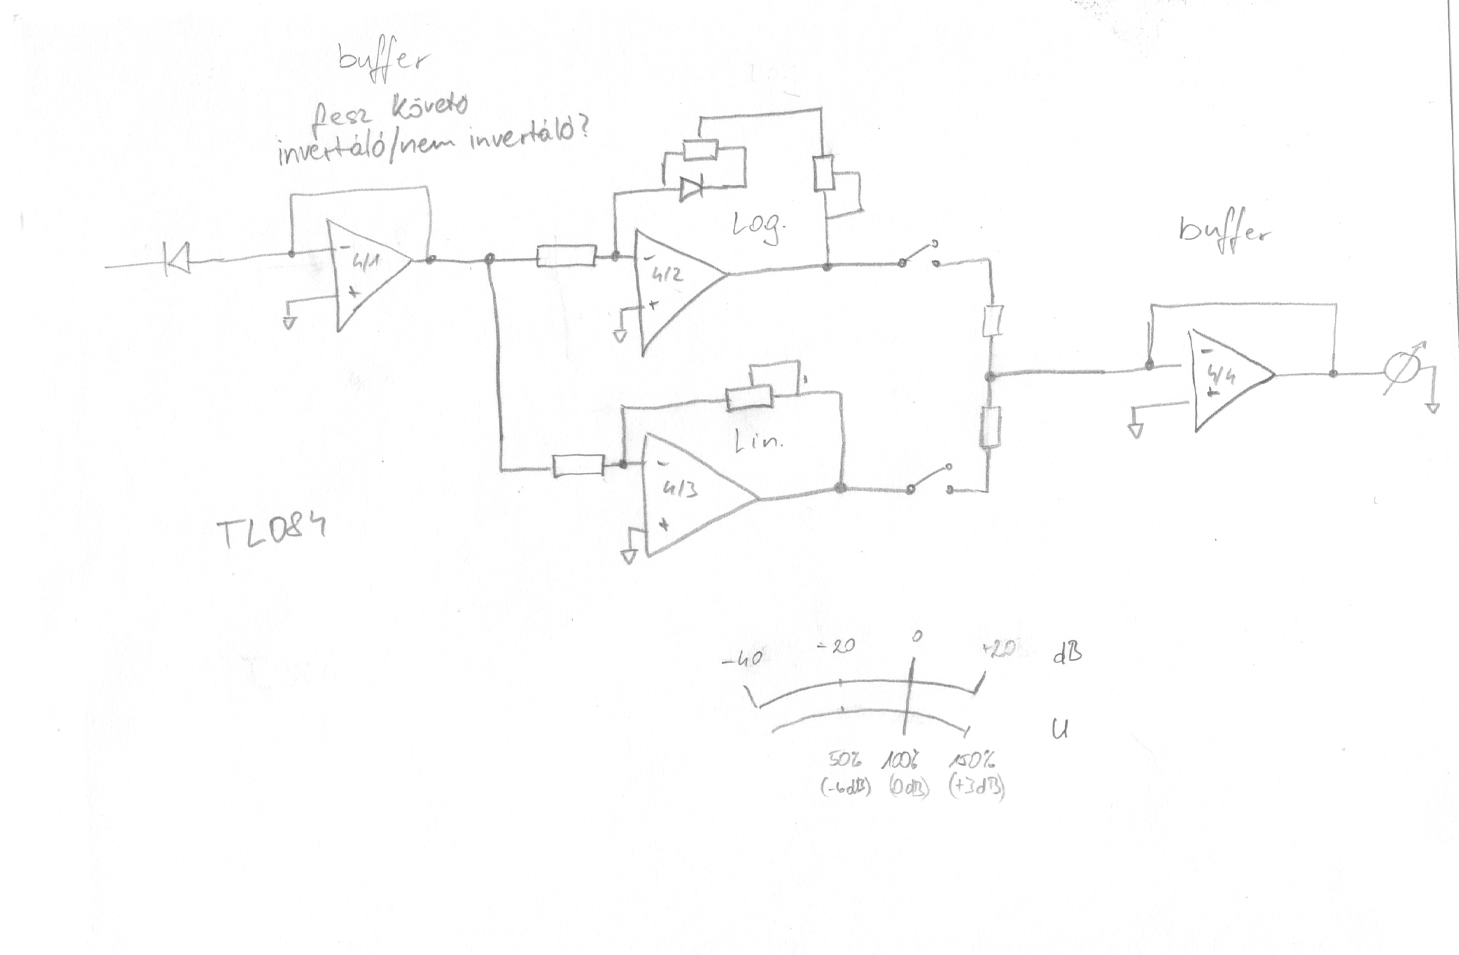 buffer
fesz követő
invertáló/nem invertáló?
-
4/1
+
Log.
-
4/2
+
buffer
-
4/4
+
Lin.
-
4/3
+
TL084
-40 -20 0 +20 dB
U
50% 100% 150%
(-6dB) (0dB) (+3dB)